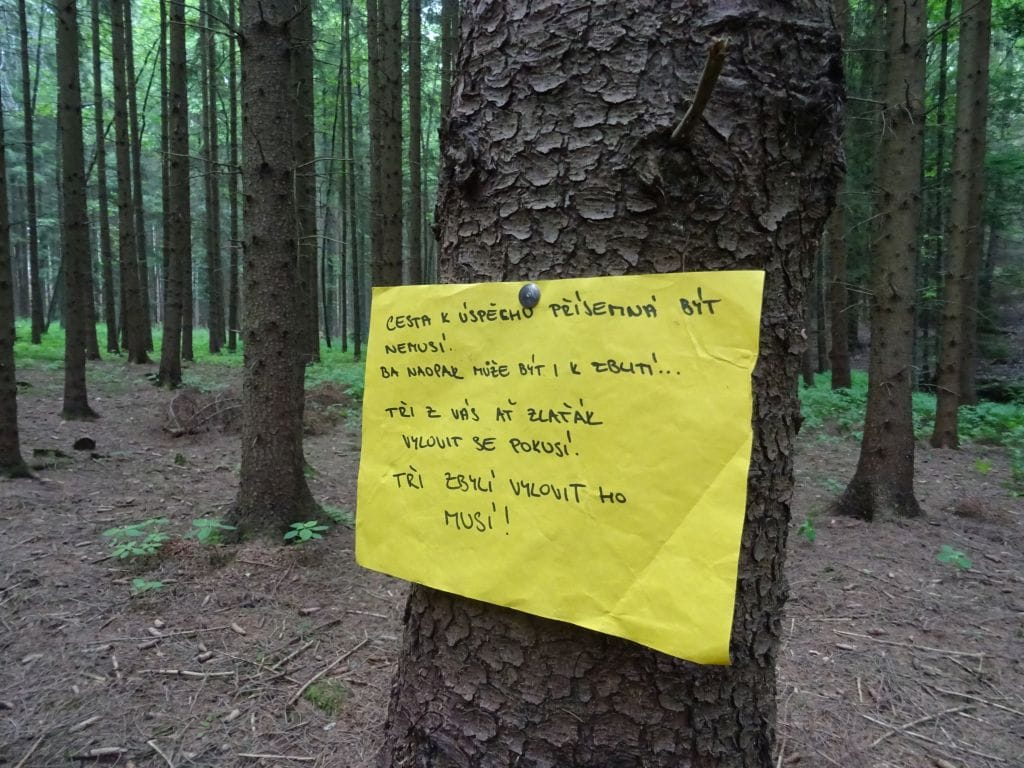 CESTA K ÚSPĚCHU PŘÍJEMNÁ BÝT
NEMUSÍ.
BA NAOPAK MŮŽE BÝT I K ZBLITÍ...
TŘI Z VÁS AŤ ZLAŤÁK
VYLOVIT SE POKUSÍ.
TŘI ZBYLÍ VYLOVIT HO
MUSÍ!